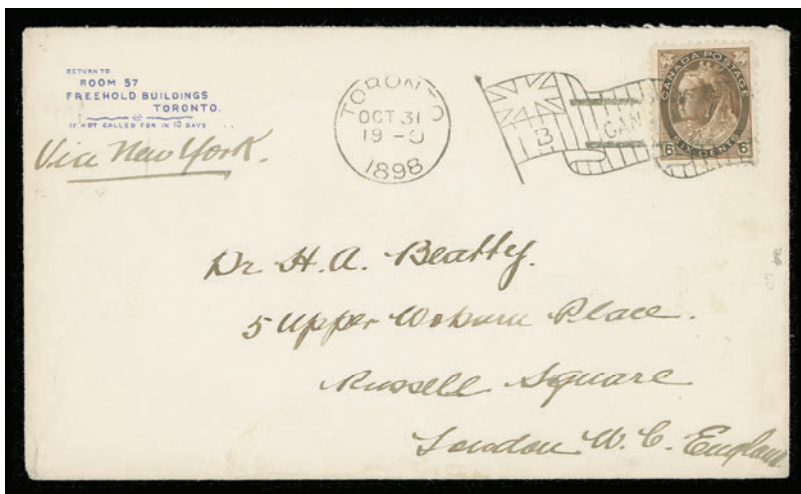 RETURN TO
ROOM 57
FREEHOLD BUILDINGS
TORONTO.
IF NOT CALLED FOR IN 10 DAYS
Via New York.
TORONTO
OCT 31
19 - 0
1898
1 B
CAN
CANADA POSTAGE
6 SIX CENTS 6
Dr H. A. Beatty.
5 Upper Woburn Place.
Russell Square
London W. C. England.